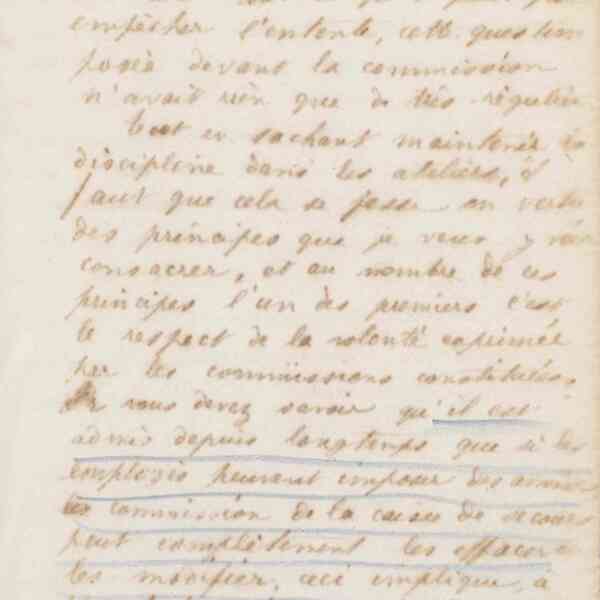 empêcher l'entente, cette question
posée devant la commission
n'avait rien que de très régulier
Tout en sachant maintenir la
discipline dans les ateliers, il
faut que cela se fasse en vertu
des principes que je veux y voir
consacrer, et au nombre de ces
principes l'un des premiers c'est
le respect de la volonté exprimée
par les commissions constituées.
Or vous devez savoir qu'il est
admis depuis longtemps que si les
employés peuvent imposer des amendes
les commission de la caisse de secours
peut complètement les effacer
les modifier, ceci implique, à